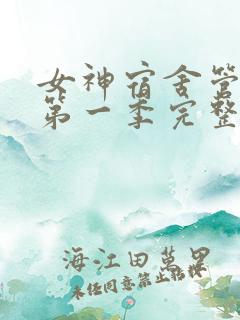 女神宿舍管
第一季完整
海江田萬里
未经同意禁止转松